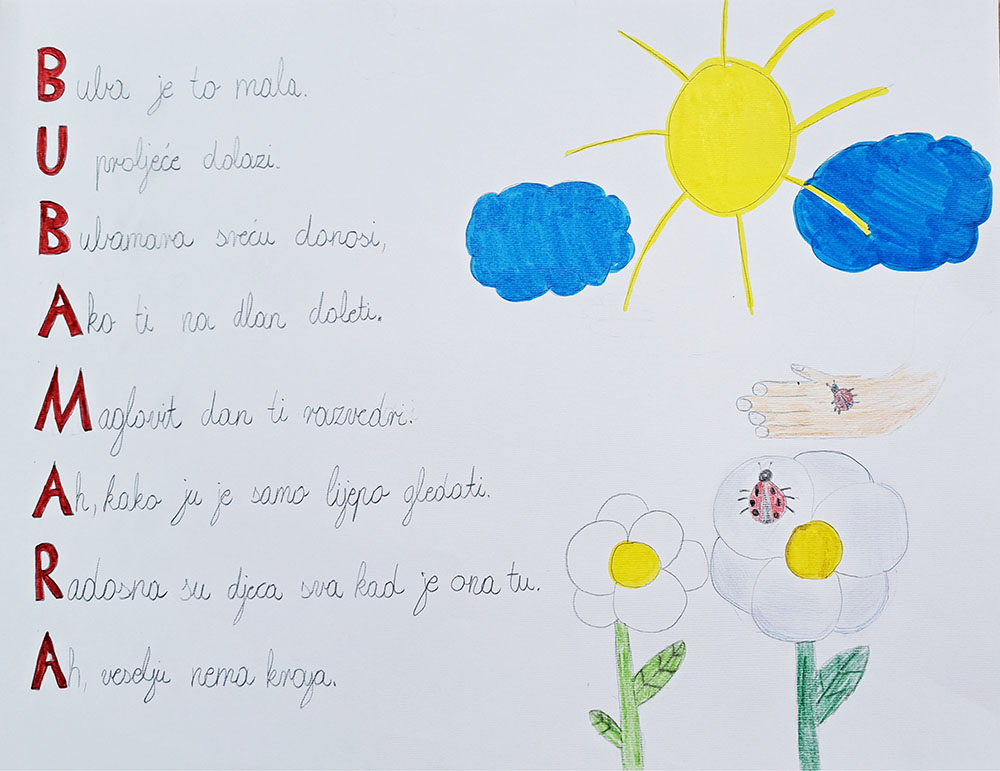 Buba je to mala.
U proljeće dolazi.
Bubamara sreću donosi,
Ako ti na dlan doleti.
Maglovit dan ti razvedri.
Ah, kako ju je samo lijepo gledati.
Radosna su djeca sva kad je ona tu.
Ah, veselju nema kraja.